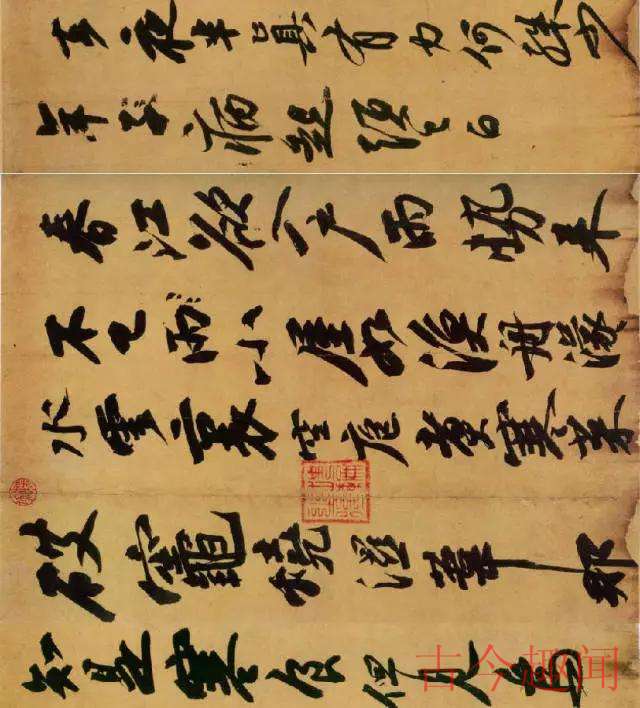 去夜半真有力何殊少
年子病起頭已白
春江欲入户雨勢来
不已雨小屋如漁舟濛
水雲裏空庖煮寒菜
破竈燒濕葦那
知是寒食但見烏
古今趣闻